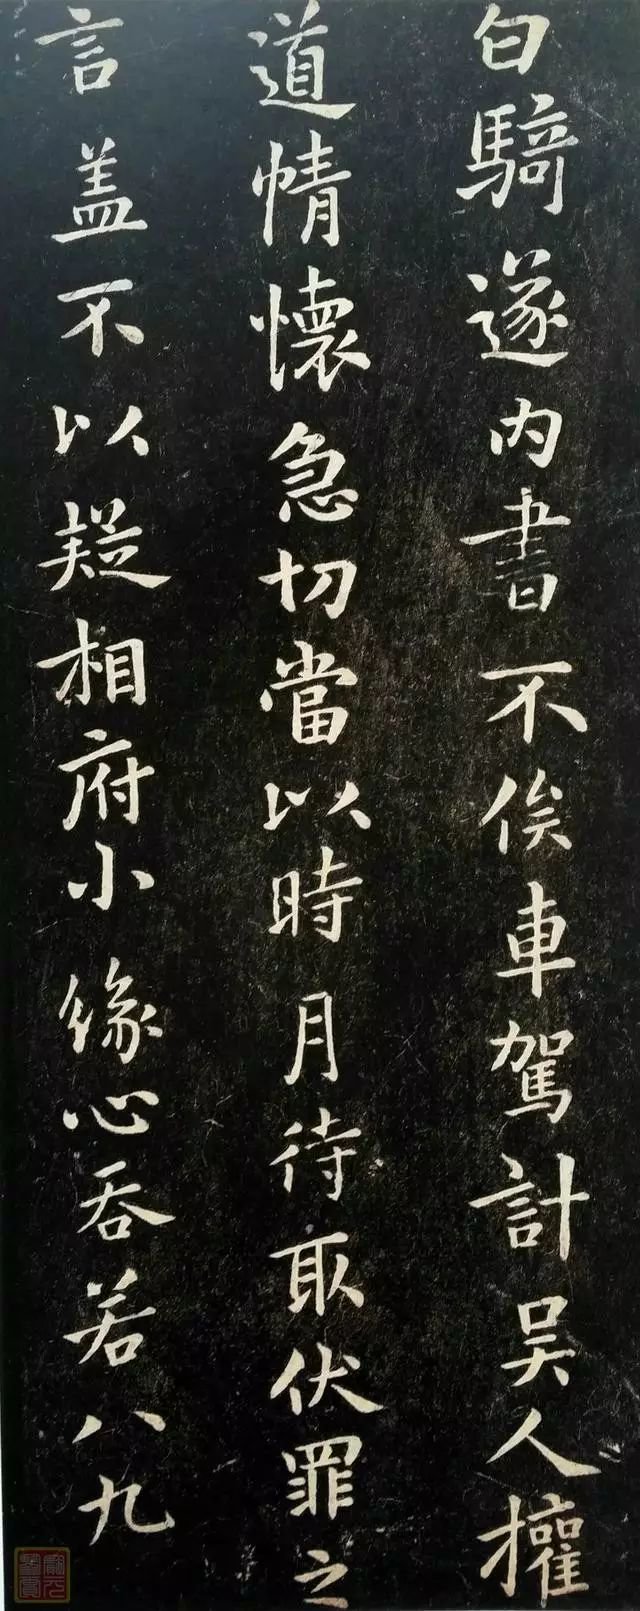 白騎遂內書不俟車駕計吴人擁
道情懷急切當以時月待取伏罪之
言盖不以疑相府小緣心吞若八九